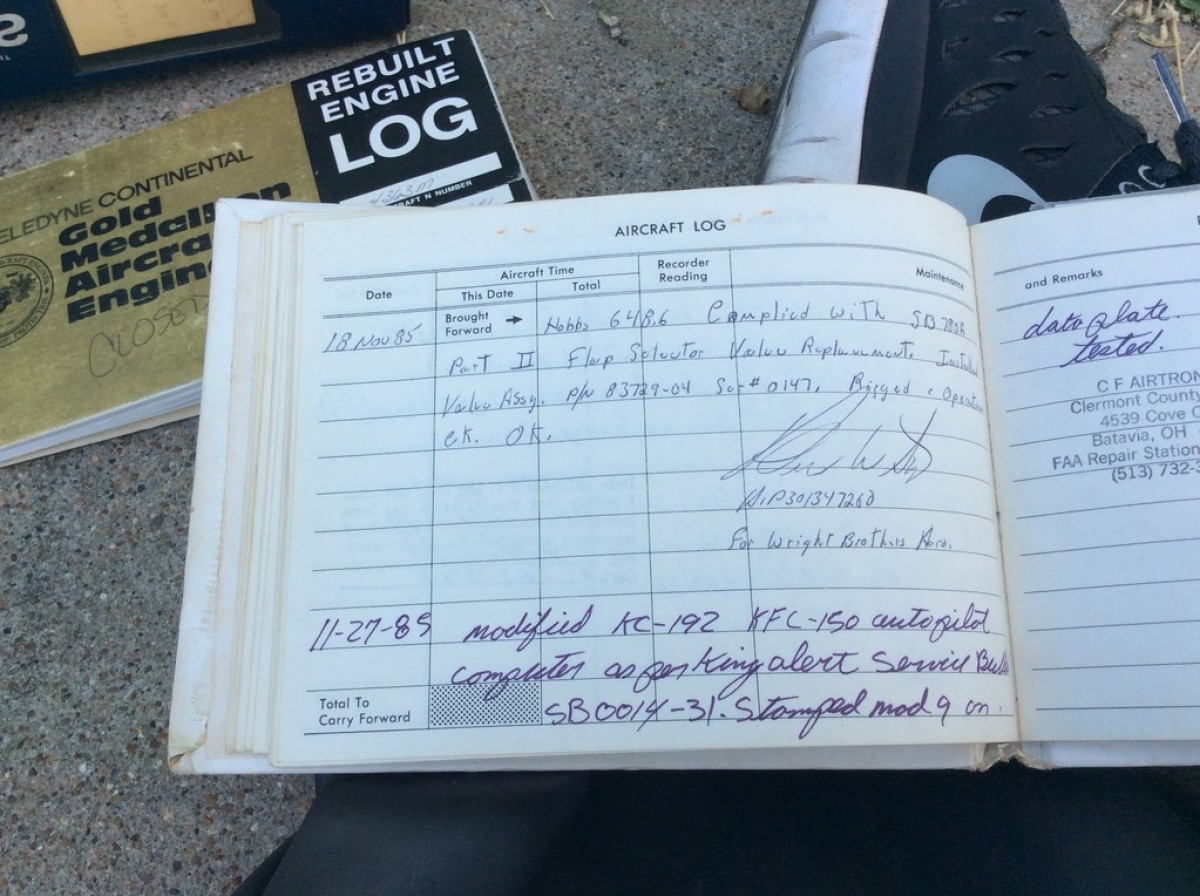 REBUILT
ENGINE
LOG
4363M
AIRCRAFT N NUMBER
TELEDYNE CONTINENTAL
Gold
Medallion
Aircraft
Engine
CLOSED
AIRCRAFT LOG
Date
Aircraft Time
This Date
Total
Recorder
Reading
Maintenance
and Remarks
Brought
Forward
18 Nov 85
Hobbs 648.6 Complied with SB 780A
Part II Flap Selector Valve Replacement. Installed
Valve Assy. P/N 83729-04 Ser# 0147. Rigged & Operation
ck. OK.
A&P301347260
For Wright Brothers Aero.
11-27-85 modified KC-192 KFC-150 autopilot
computer as per King alert Service Bulle
SB0014-31. Stamped mod 9 on
Total To
Carry Forward
data plate.
tested.
C F AIRTRON
Clermont County
4539 Cove
Batavia, OH
FAA Repair Station
(513) 732-3